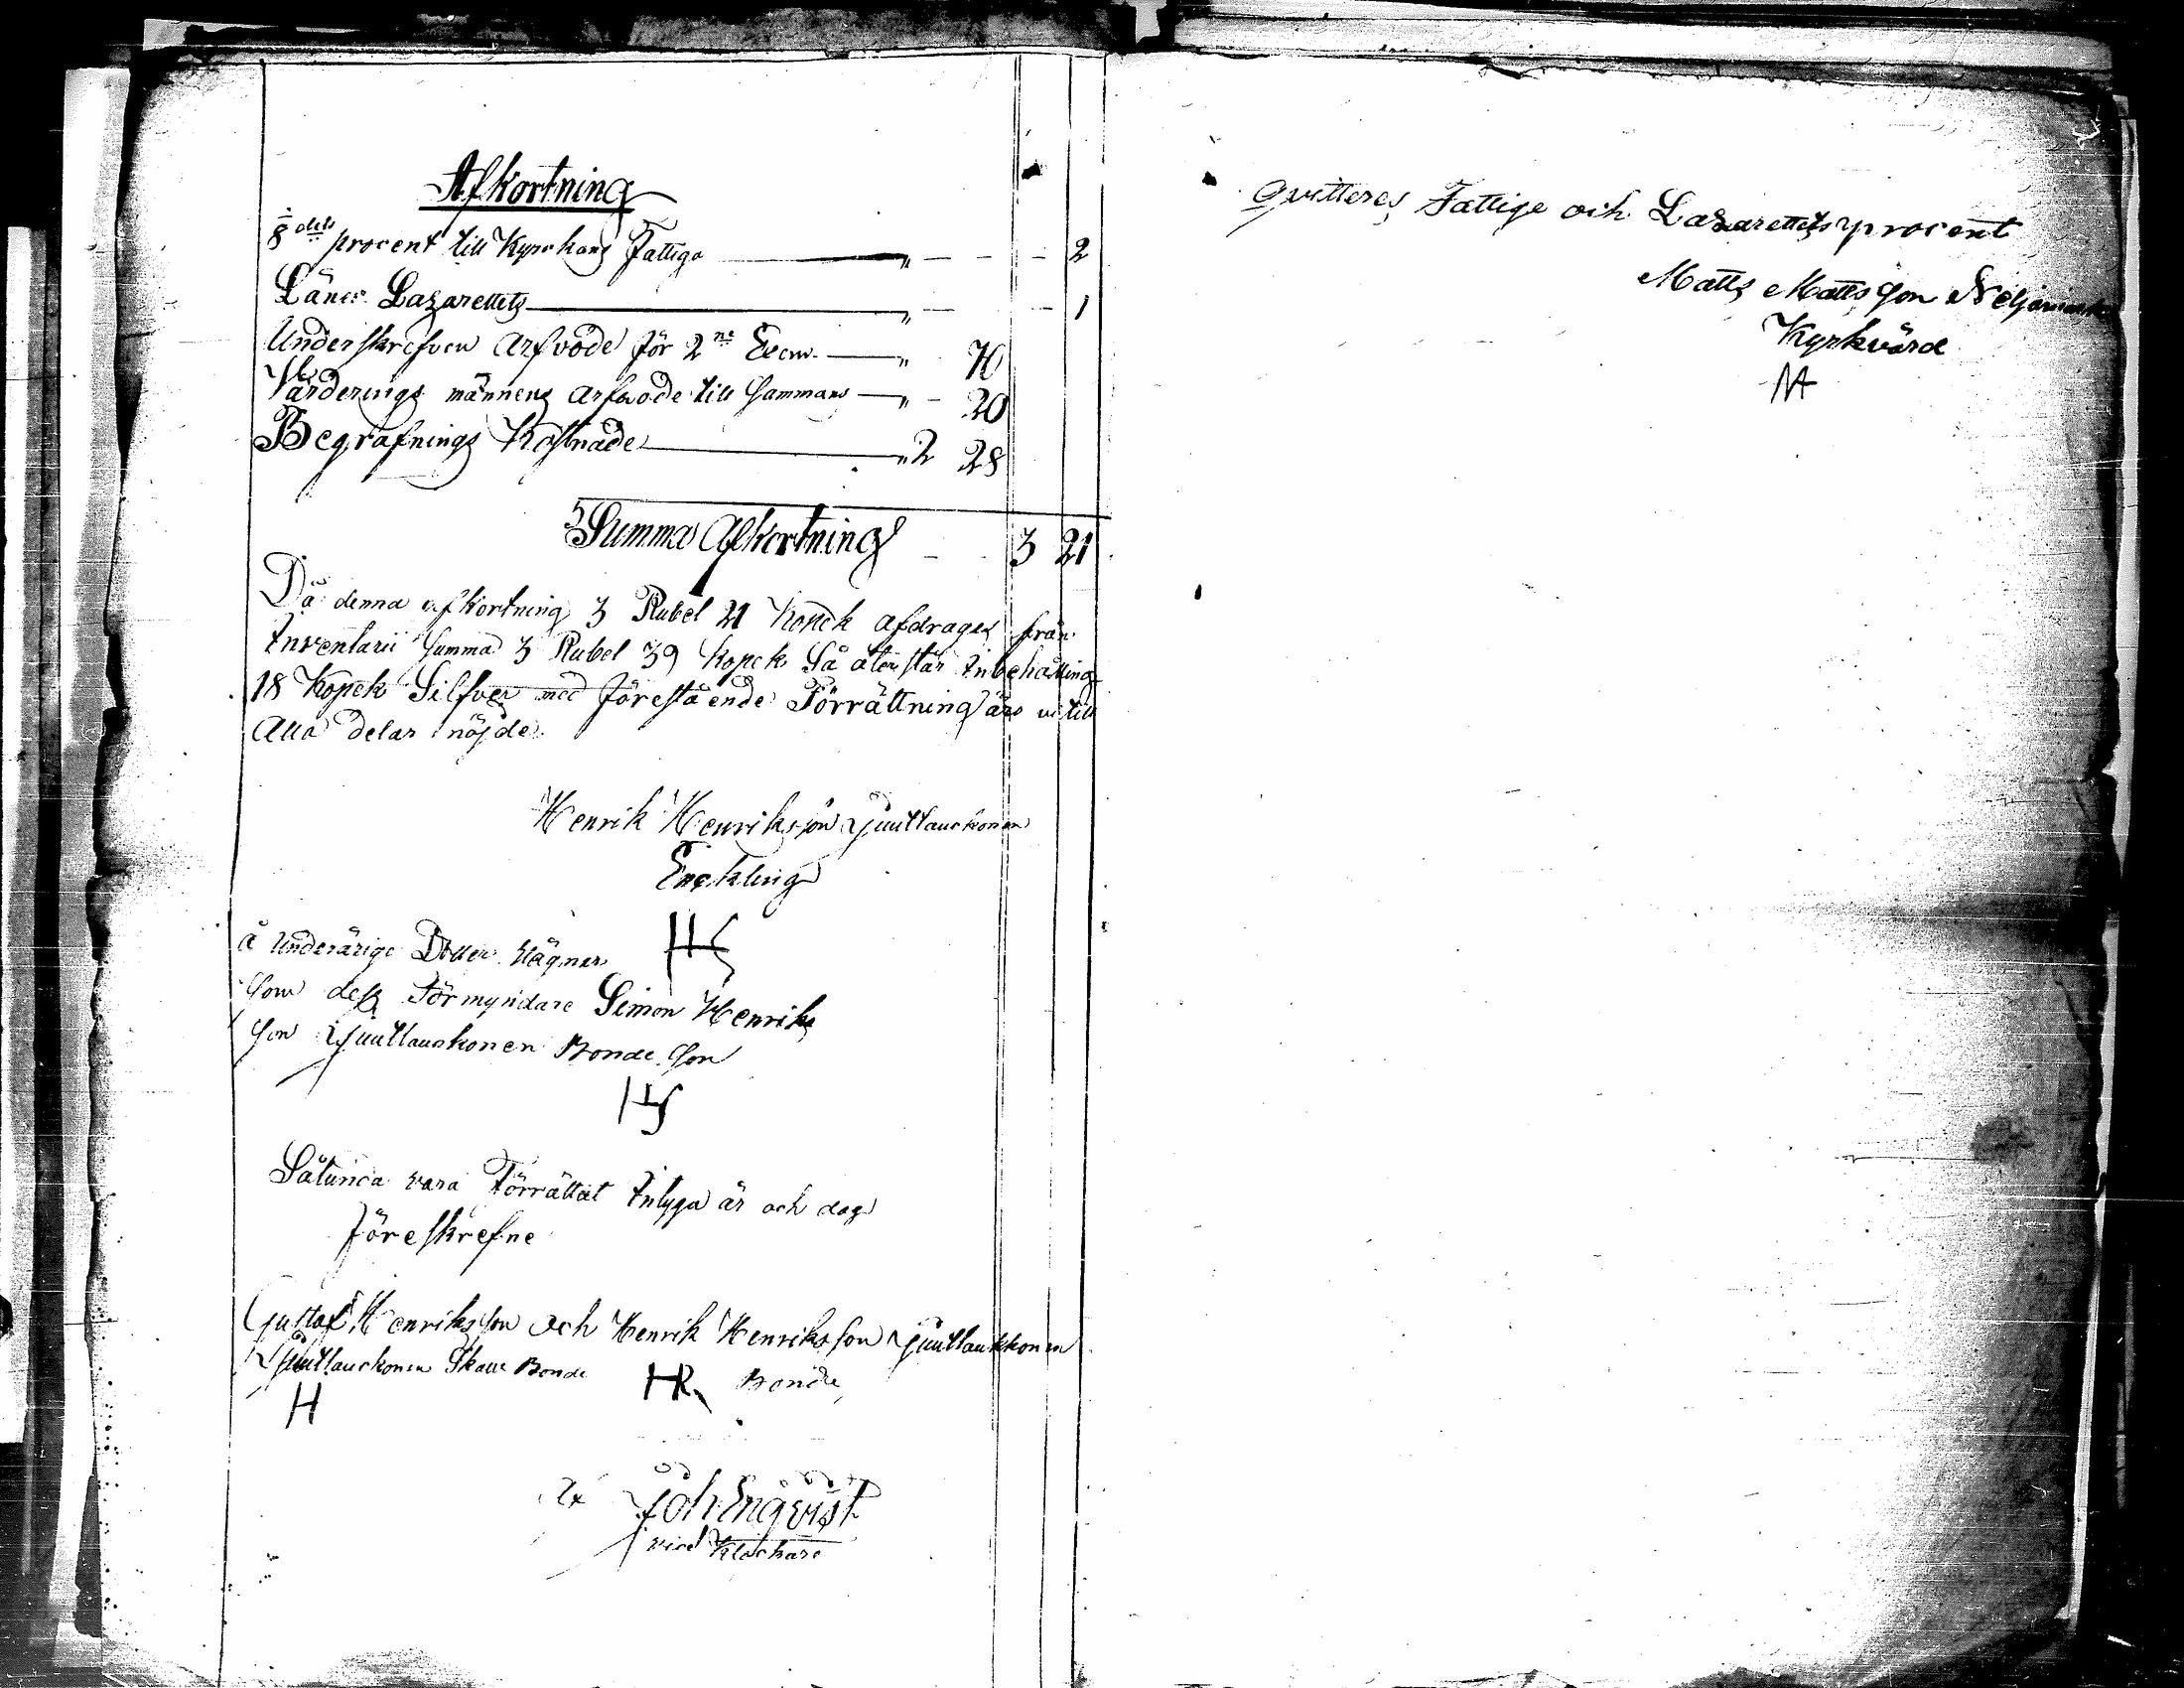 Afkortning
8dels procent till Kyrckans Fattiga " 2
Läns Lazarettets " 1
Underskrefven Arfvode för 2ne Exem. " 70
Värderings männens arfwode till sammans " 20
Begrafnings Kostnade " 2 28
Summa Afkortning 3 21
Då denna afkortning 3 Rubel 21 Kopek afdrages från
Inventarii Summa 3 Rubel 39 Kopek Så återstår Inbehållning
18 Kopek Silfver med förestående Förrättning äro vi till
Alla delar nöjde
Henrik Henriksson Juutlauckonen
Enckling
å Underårige Dotter wägnar HS
som dess Förmyndare Simon Henriks
son Juutlauckonen Bonde son
HS
Sålunda vara Förrättat Intyga år och dag
föreskrefne
Gustaf Henriksson och Henrik Henriksson Juutlaukkonen
Juutlauckonen Skatte Bonde HR Bonde
H
Joh Enqvist
vice Klockare
Qvitteres Fattige och Lazarettets procent
Matts Mattsson
Kyrkvärd
MA